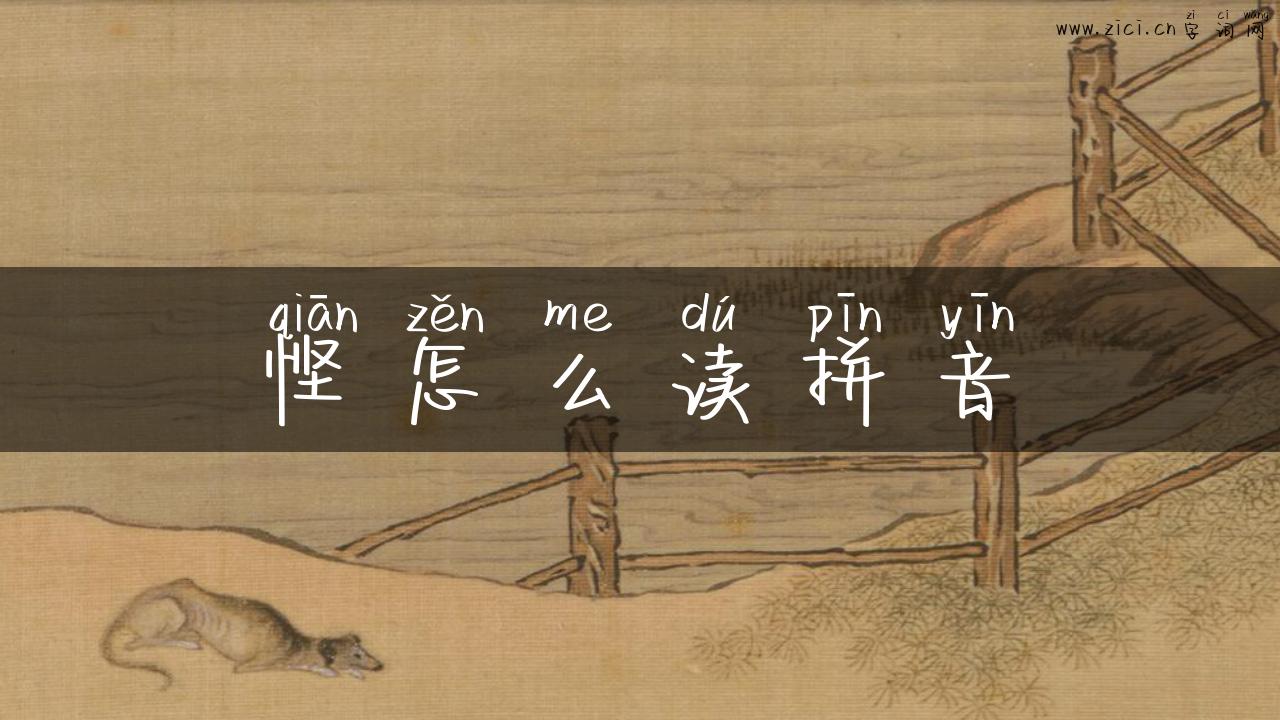 zì cí wǎng
www.zici.cn 字词网
qiān zěn me dú pīn yīn
悭怎么读拼音